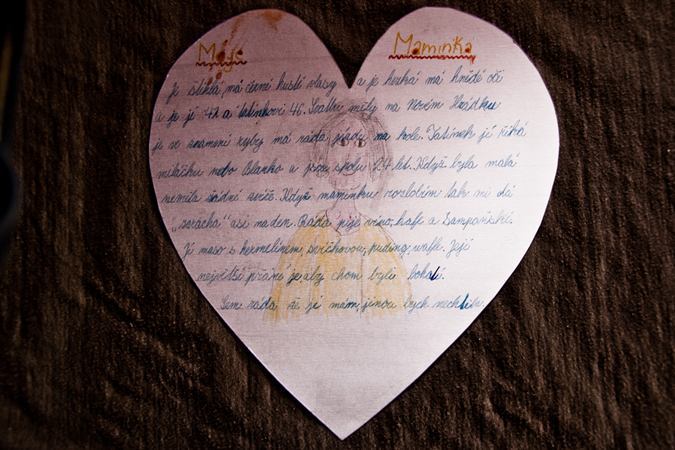 Moje Maminka
Je štíhlá, má černí hustí vlasy a je hezká má hnědé oči
a je jí 42 a tatínkovi 46. Svatbu měly na Novém Hrádku
je ve znamení ryby má ráda jízdy na kole. Tatínek jí říká
miláčku nebo Blanko a jsou spolu 24 let. Když byla malá
neměla žádné zvíře. Když maminku rozlobím tak mi dá
„zaracha" asi na den. Ráda pije víno, kafe a šampaňské.
Jí maso s hermelínem, svíčkovou, puding, wafle. Její
největší přání je aby chom byli bohatí.
Sem ráda že jí mám, jinou bych nechtěla